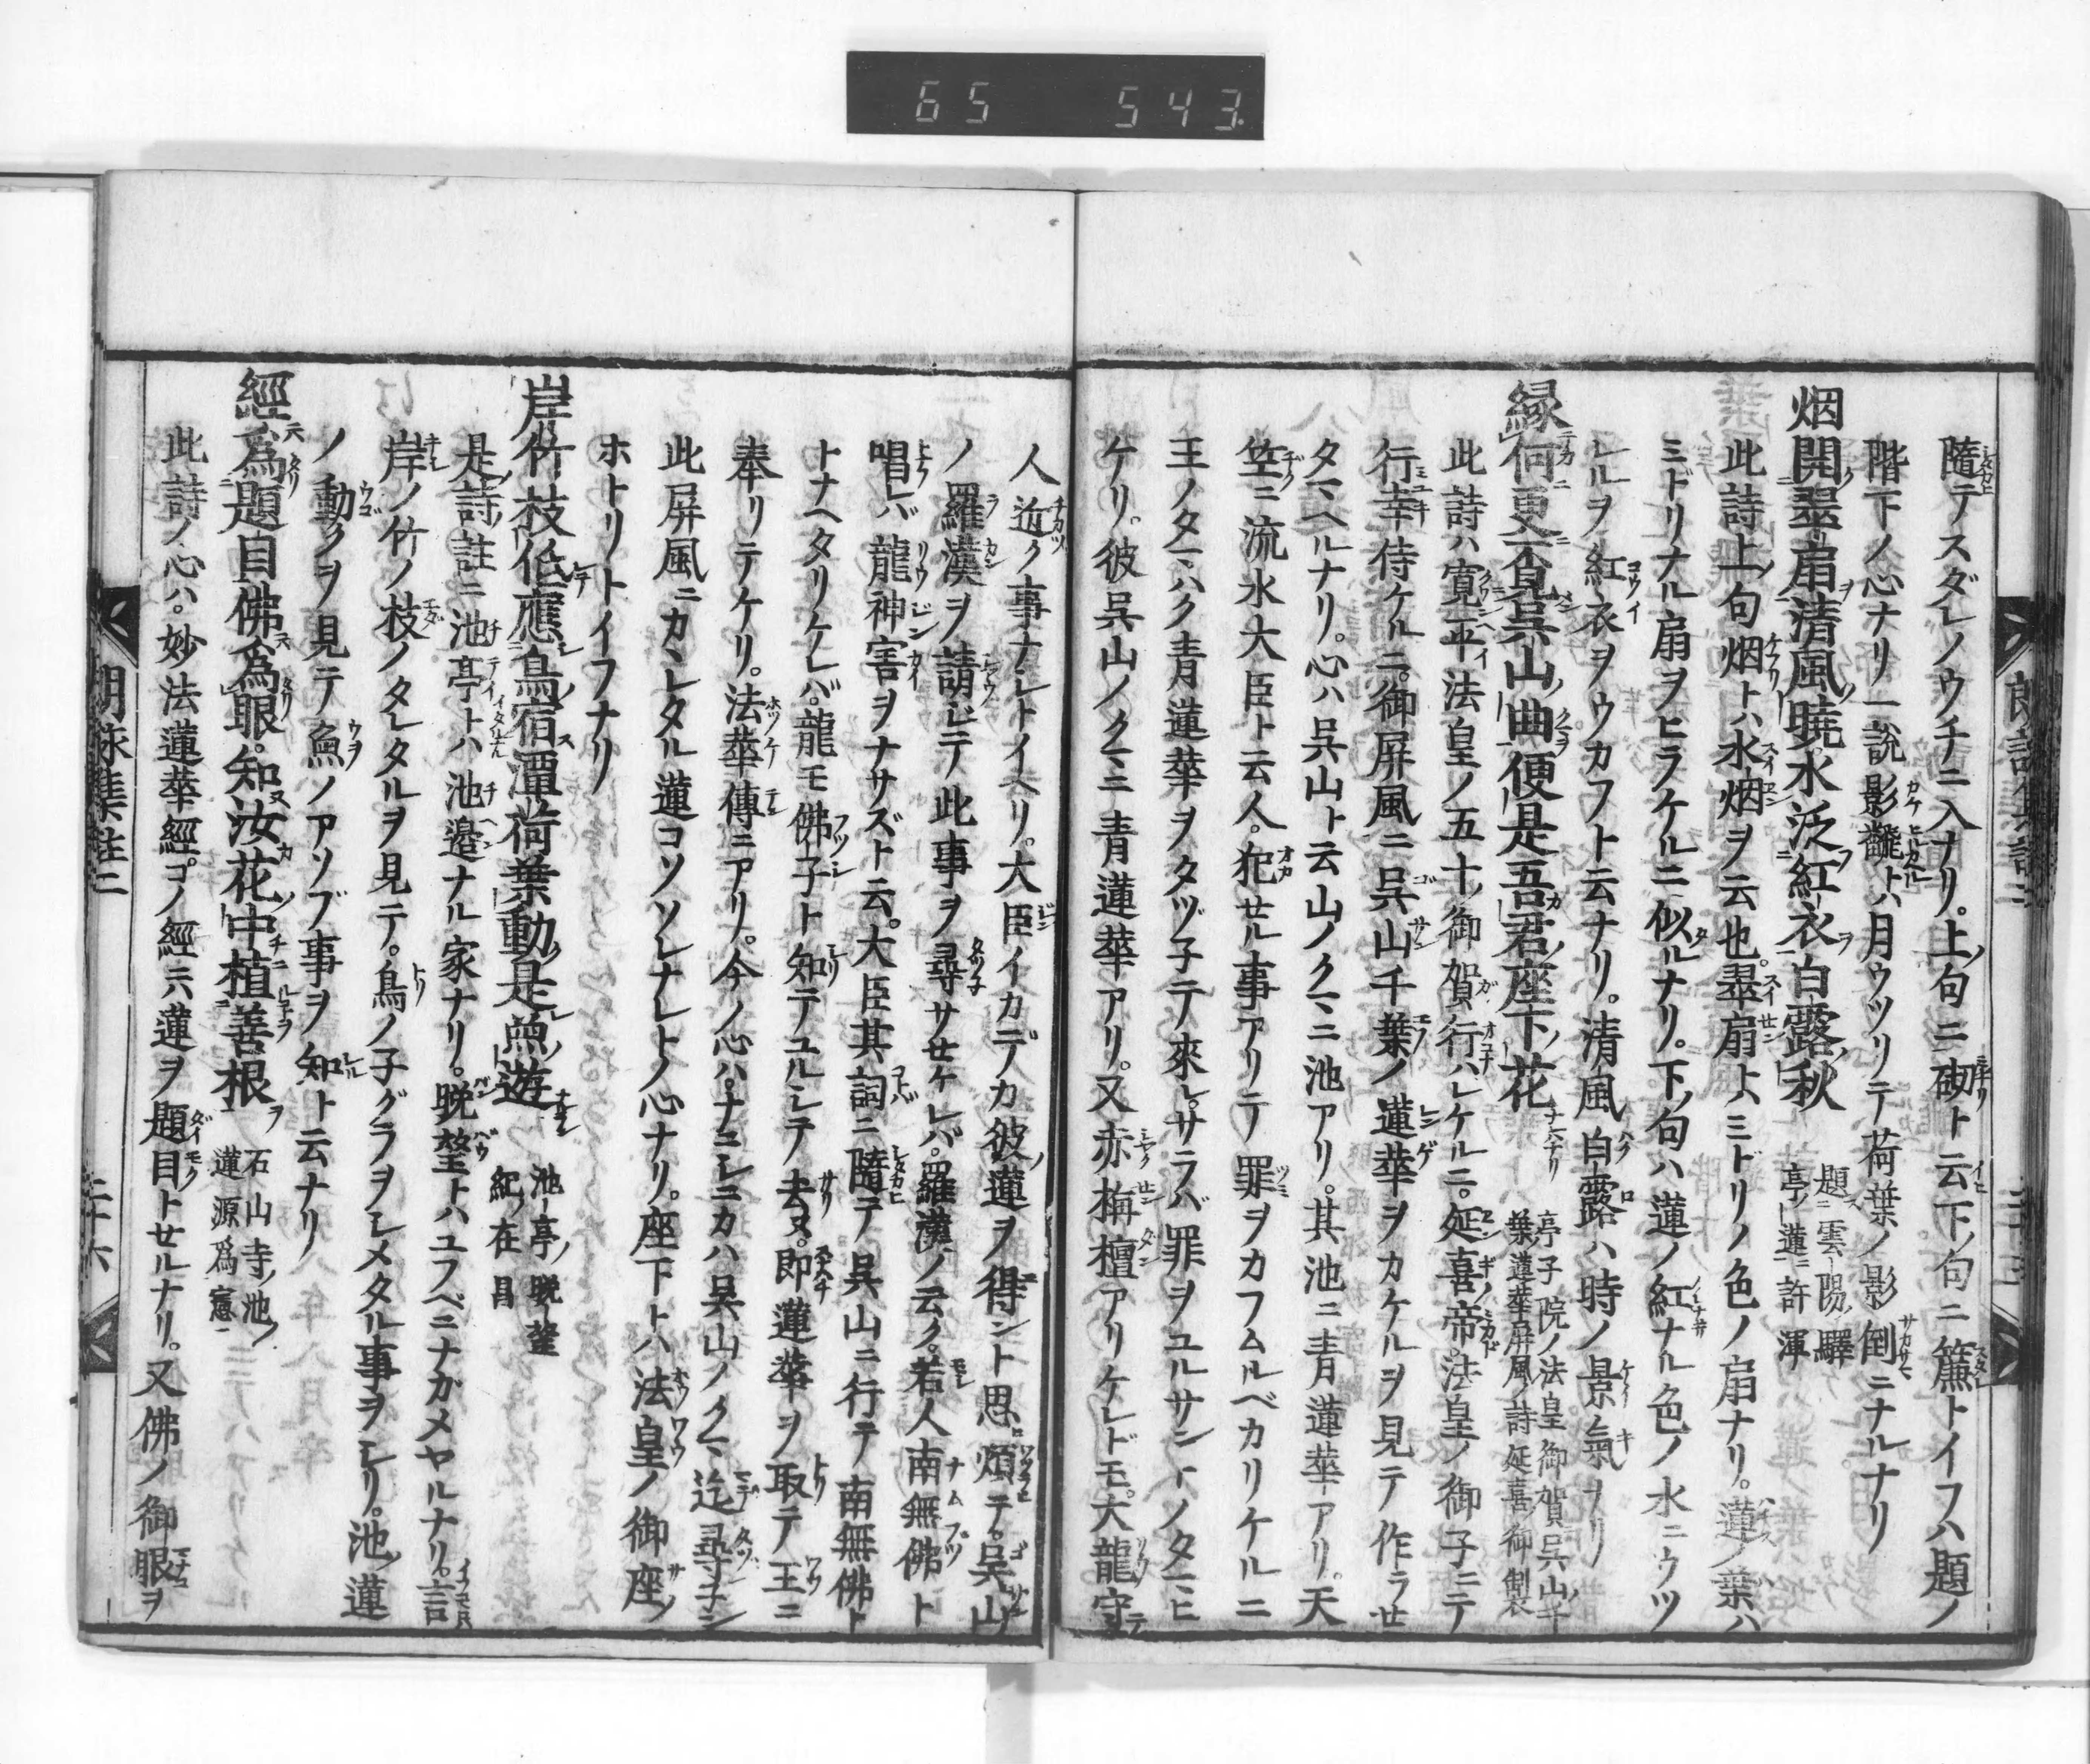 65 543.
隨テスダレノウチニ入ナリ。上ノ句ニ砌ト云下ノ句ニ簾トイフハ題ノ
階下ノ心ナリ一説影飜トハ月ウツリテ荷葉ノ影倒ニナルナリ
烟開翠扇清風曉水泛紅衣白露秋
題雲陽驛
亭蓮許渾
此詩上ノ句烟トハ水烟ヲ云也。翠扇トハミドリノ色ノ扇ナリ。蓮ノ葉ハ
ミドリナル扇ヲヒラケルニ似ルナリ。下ノ句ハ蓮ノ紅ナル色ノ水ニウツ
レルヲ紅衣ヲウカフト云ナリ。清風白露ハ時ノ景氣ナリ
縁何更覔呉山曲便是吾君座下花
亭子院ノ法皇御賀呉山千
葉蓮華屏風ノ詩延喜御製
此詩ハ寛平法皇ノ五十ノ御賀行ハレケルニ。延喜帝。法皇ノ御子ニテ
行幸侍ケルニ。御屏風ニ呉山千葉ノ蓮華ヲカケルヲ見テ作ラせ
タマヘルナリ。心ハ呉山ト云山ノクマニ池アリ。其池ニ青蓮華アリ。天
竺ニ流水大臣ト云人。犯せル事アリテ罪ヲカフムルベカリケルニ
王ノタマハク青蓮華ヲタヅ子テ來レ。サラバ罪ヲユルサントノタマヒ
ケリ。彼呉山ノクマニ青蓮華アリ。又赤栴檀アリケレドモ。大龍守テ
人近ク事ナレトイヘリ。大臣イカデカ彼蓮ヲ得ント思煩テ。呉山
ノ羅漢ヲ請ジテ此事ヲ尋サせケレバ。羅漢ノ云ク。若人南無佛ト
唱レバ龍神害ヲナサズト云。大臣其詞ニ隨テ呉山ニ行テ南無佛ト
トナヘタリケレバ。龍モ佛子ト知テユルシテ去ヌ。即蓮華ヲ取テ王ニ
奉リテケリ。法華傳ニアリ。今ノ心ハ。ナニシニカハ呉山ノクマ迄尋子ン
此屏風ニカヽレタル蓮コソソレナレトノ心ナリ。座下トハ法皇ノ御座ノ
ホトリトイフナリ
岸竹枝低應鳥宿潭荷葉動是魚遊
池亭ノ晩望
紀ノ在昌
是詩ノ註ニ池亭トハ池邉ナル家ナリ。晩望トハユフベニナガメヤルナリ。言
岸ノ竹ノ枝ノタレタルヲ見テ。鳥ノ子グラヲシメタル事ヲシリ。池ノ蓮
ノ動クヲ見テ魚ノアソブ事ヲ知ト云ナリ
經為題目佛為眼知汝花中植善根
石山寺ノ池ノ
蓮源為憲
此詩ノ心ハ。妙法蓮華經コノ經ニハ蓮ヲ題目トせルナリ。又佛ノ御眼ヲ
朗詠集註二
三十六